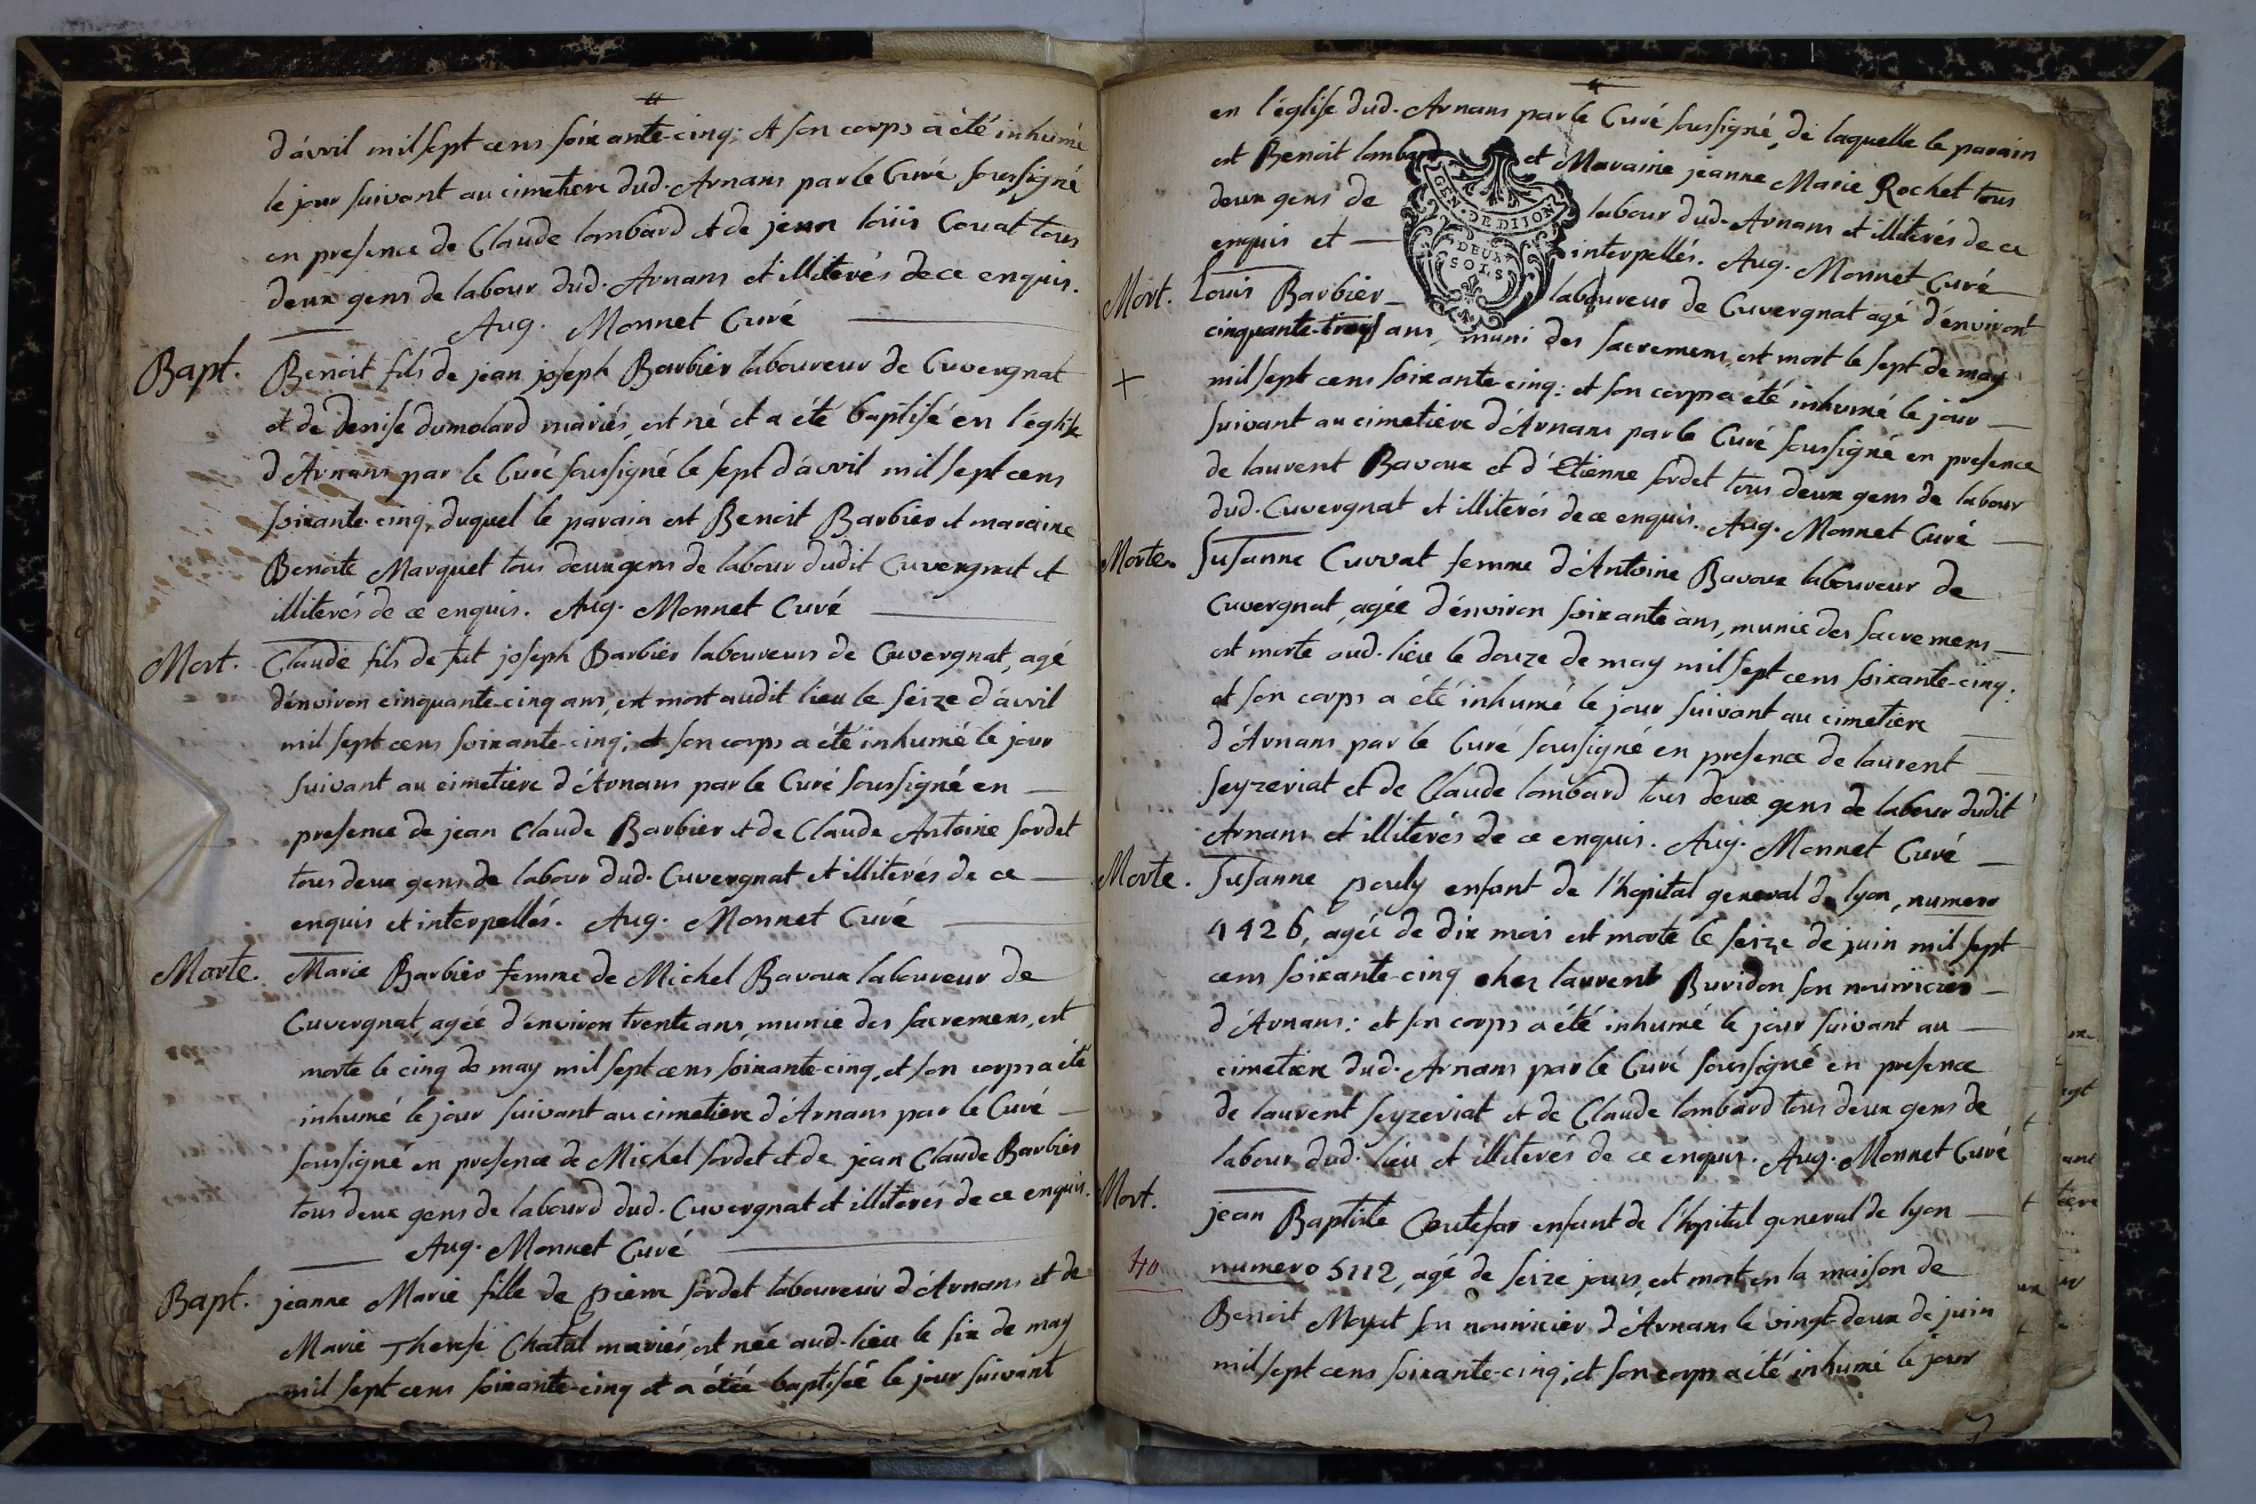 d'avril mil sept cens soixante-cinq; et son corps a été inhumé
le jour suivant au cimetiere dud. Arnans par le Curé soussigné
en presence de Claude lombard et de jean loüis Couat tous
deux gens de labour dud. Arnans et illiterés de ce enquis.
Aug. Monnet Curé
Bapt. Benoit fils de jean joseph Barbier laboureur de Cuvergnat
et de Denise dumolard mariés, est né et a été baptisé en l'église
d'Arnans par le Curé soussigné le sept d'avril mil sept cens
soixante-cinq, duquel le parain est Benoit Barbier et maraine
Benoite Marquet tous deux gens de labour dudit Cuvergnat et
illiterés de ce enquis. Aug. Monnet Curé
Mort. Claude fils de fut joseph Barbier laboureurs de Cuvergnat, agé
d'environ cinquante-cinq ans, est mort audit lieu le seize d'avril
mil sept cens soixante-cinq; et son corps a été inhumé le jour
suivant au cimetiere d'Arnans par le Curé soussigné en
presence de jean Claude Barbier et de Claude Antoine sordet
tous deux gens de labour dud. Cuvergnat et illiterés de ce
enquis et interpellés. Aug. Monnet Curé
Morte. Marie Barbier femme de Michel Bavoux laboureur de
Cuvergnat, ageé d'environ trente ans, munie des sacremens, est
morte le cinq de may mil sept cens soixante-cinq, et son corps a été
inhumé le jour suivant au cimetiere d'Arnans par le Curé
soussigné en presence de Michel sordet et de jean Claude Barbier
tous deux gens de labourd dud. Cuvergnat et illiterés de ce enquis.
Aug. Monnet Curé
Bapt. jeanne Marie fille de pierre sordet laboureur d'Arnans et de
Marie Therese Chatal mariés, est née aud. lieu le six de may
mil sept cens soixante-cinq et a étée baptisée le jour suivant
en l'église dud. Arnans par le Curé soussigné, de laquelle le parain
est Benoit lombard et Maraine jeanne Marie Rochet tous
deux gens de labour dud. Arnans et illiterés de ce
enquis et interpellés. Aug. Monnet Curé
GEN. DE DIJON
DEUX
SOLS
Mort. Louis Barbier laboureur de Cuvergnat agé d'environt
cinquante-trois ans, muni des sacremens, est mort le sept de may
mil sept cens soixante-cinq: et son corps a été inhumé le jour
suivant au cimetiere d'Arnans par le Curé soussigné en presence
de laurent Bavoux et d'Etienne sordet tous deux gens de labour
dud. Cuvergnat et illiterés de ce enquis. Aug. Monnet Curé
Morte. Susanne Cuvvat femme d'Antoine Bavoux laboureur de
Cuvergnat, agée d'environ soixante ans, munie des sacremens
est morte aud. lieu le douze de may mil sept cens soixante-cinq:
et son corps a été inhumé le jour suivant au cimetiere
d'Arnans par le Curé soussigné en presence de laurent
seyzeriat et de Claude lombard tous deux gens de labour dudit
Arnans et illiterés de ce enquis. Aug. Monnet Curé
Morte. Susanne pouly enfant de l'hopital general de lyon, numero
4426, agée de dix mois est morte le seize de juin mil sept
cens soixante-cinq chez laurent Buridon son nourricier
d'Arnans: et son corps a été inhumé le jour suivant au
cimetiere dud. Arnans par le Curé soussigné en presence
de laurent seyzeriat et de Claude lombard tous deux gens de
labour dud. lieu et illiterés de ce enquis. Aug. Monnet Curé
Mort. jean Baptiste Coutefar enfant de l'hopital general de lyon
40 numero 5112, agé de seize jours, est mort en la maison de
Benoit Moyat son nourricier d'Arnans le vingt-deux de juin
mil sept cens soixante-cinq; et son corps a été inhumé le jour